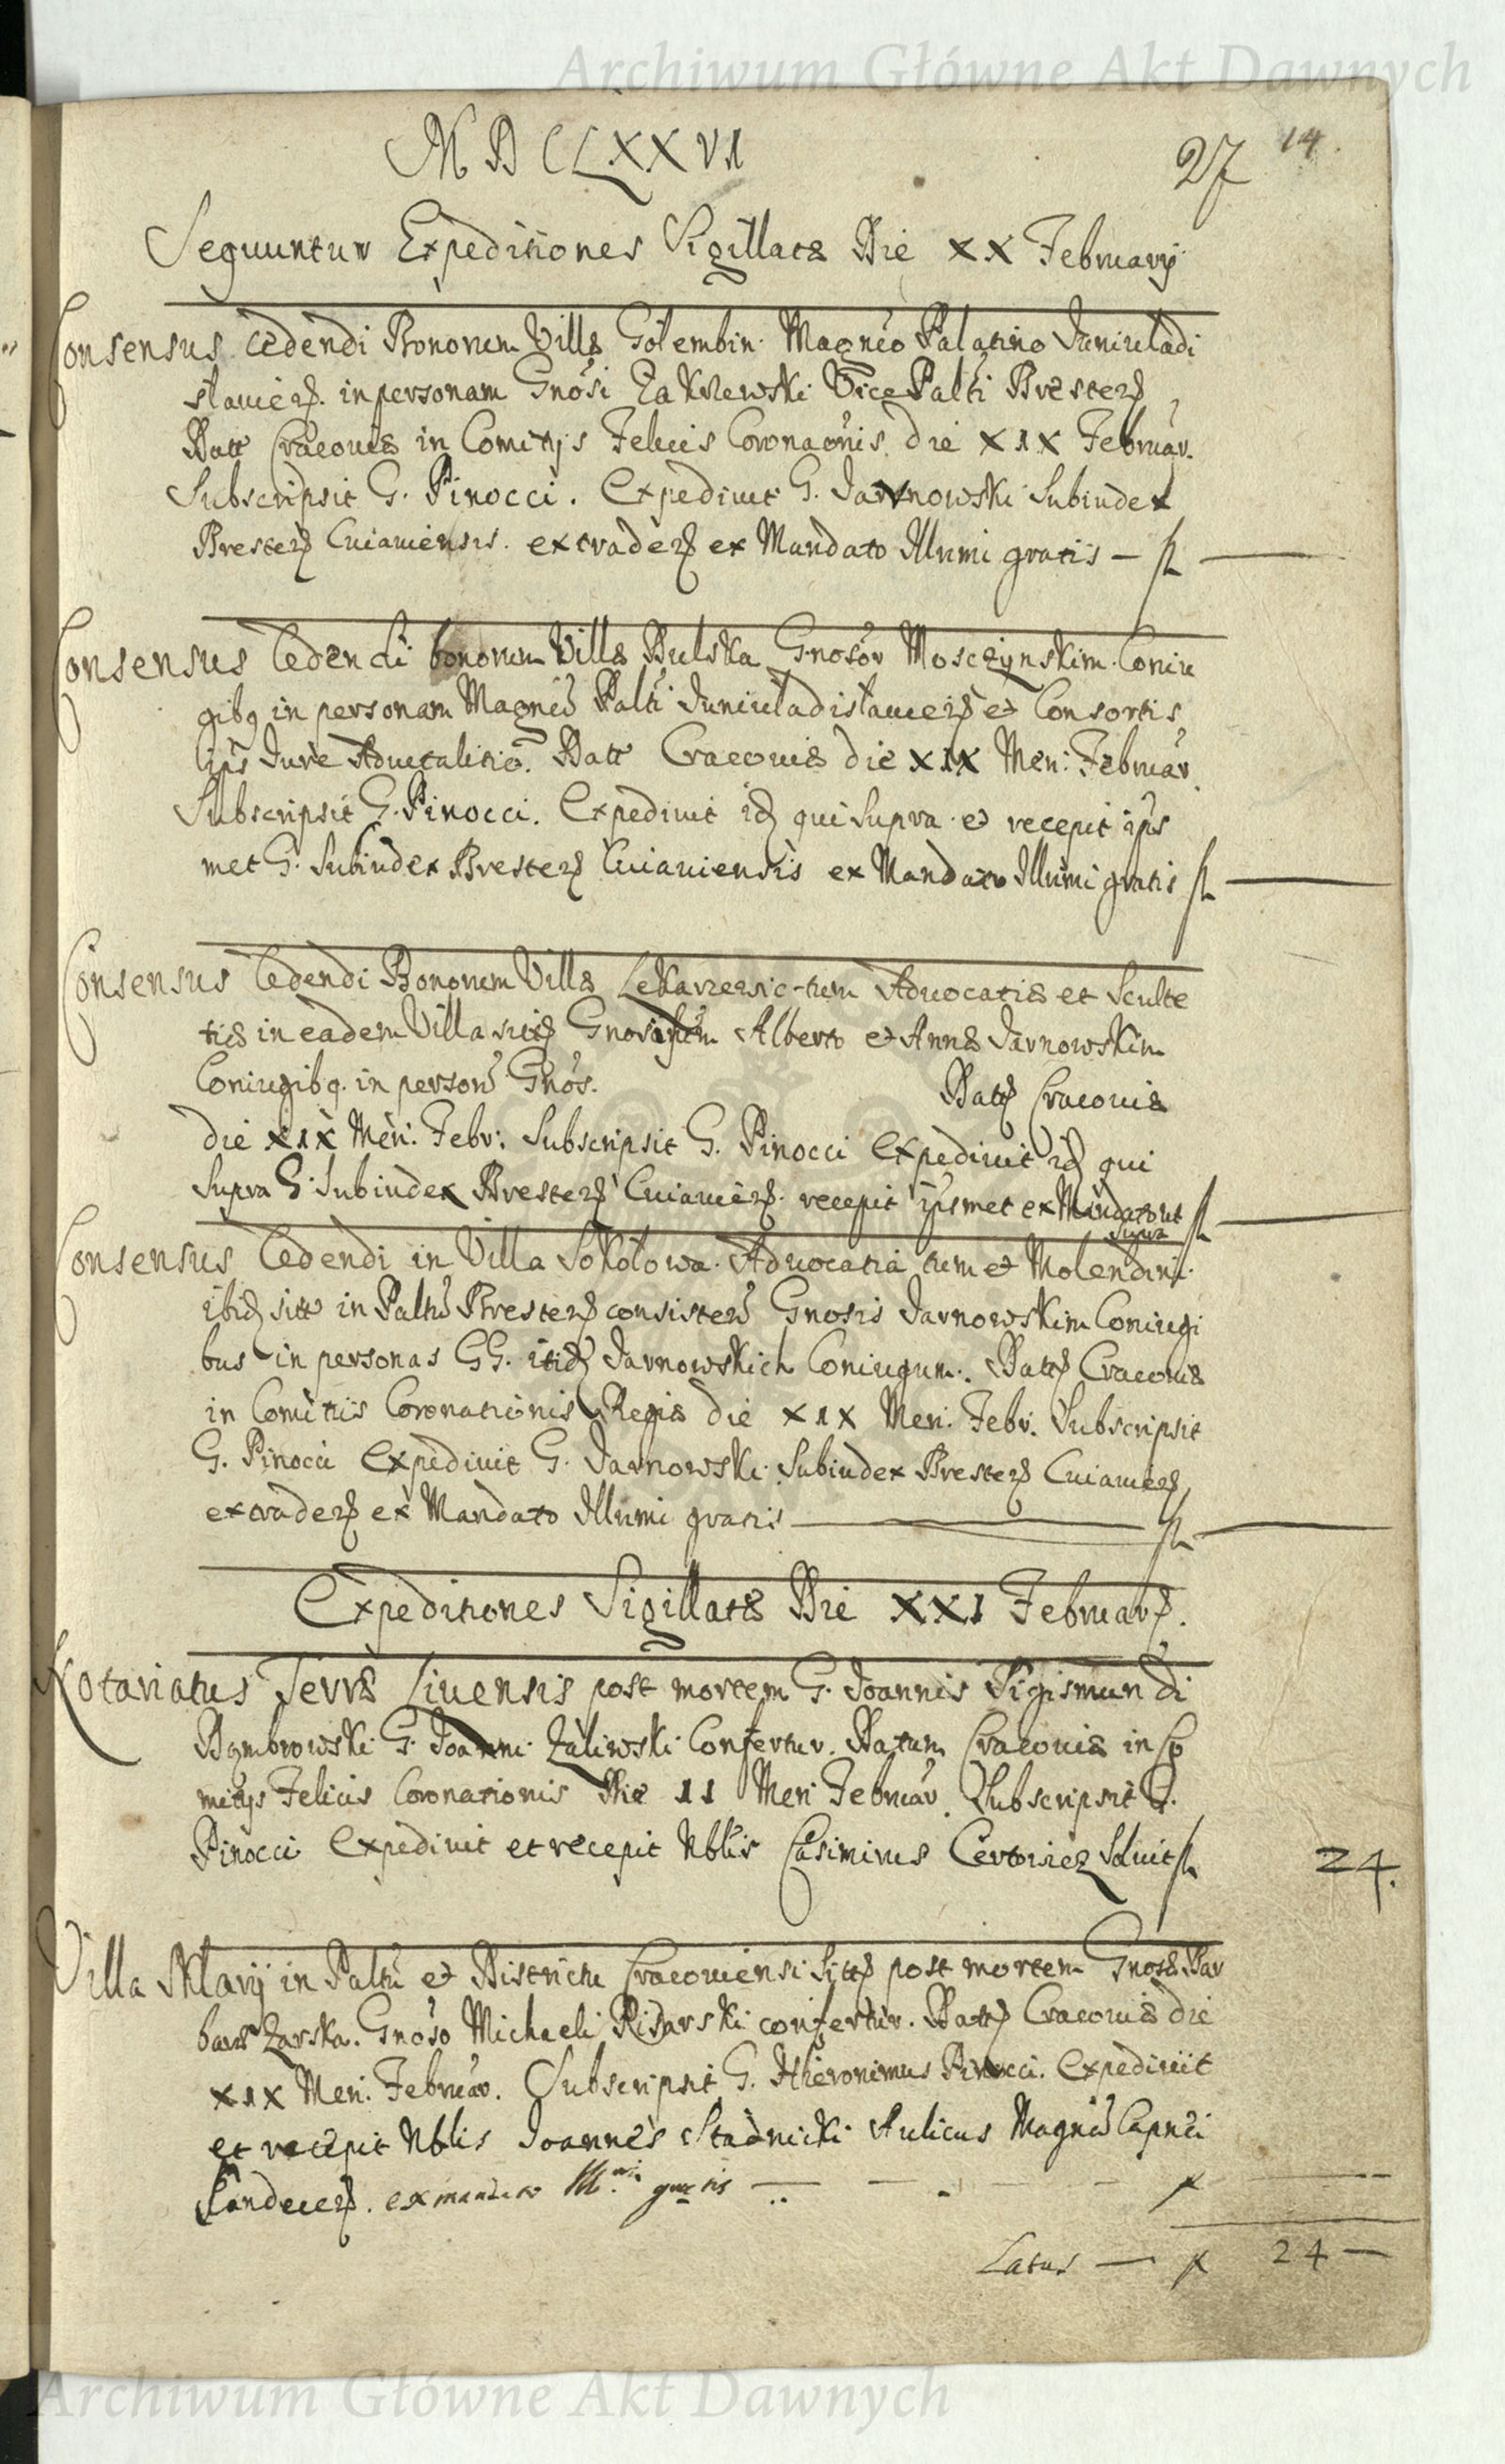 Archiwum Główne Akt Dawnych
MDCLXXVI
27 14.
Sequuntur Expeditiones Sigillatæ Die XX Februarij
Consensus cedendi Bonorum Villæ Golembin Magnco Palatino Juniuladi
slauien. in personam Gnosi Zakrzewski Vice Palti Bresten
Datt Cracouiæ in Comitijs Felicis Coronaonis die XIX Februar.
Subscripsit G. Pinocci. Expediuit G. Jarnowski Subiudex
Bresten Cuiauiensis. extraden ex Mandato Illumi gratis — fl —
Consensus Cedendi bonorum Villæ Dulska Gnosor Mosczynskim Coniu
gibq in personam Magnci Palti Juniuladislauien et Consortis
ips Jure Aduitalitio. Datt Cracouiæ die XIX Men: Februar.
Subscripsit G. Pinocci. Expediuit id qui supra et recepit ips
met G. Subiudex Bresten Cuiauiensis ex Mandato Illumi gratis fl —
Consensus Cedendi Bonorum Villæ tum Aduocatiæ et Sculte
tiæ in eadem Villa Alberto et Annæ Jarnowskim
Coniugibq. in person Gnos. Datt Cracouiæ
die XIX Men: Febr: Subscripsit G. Pinocci Expediuit id qui
supra G. Subiudex Bresten Cuiauien. recepit ipsmet ex Mandato ut fl —
supra
Consensus Cedendi in Villa Sokołowa Aduocatia tum et Molendini
ibid sitt in Paltu Bresten consisten Gnosis Jarnowskim Coniugi
bus in personas GG. itid Jarnowskich Coniugum. Datt Cracouiæ
in Comitiis Coronationis Regiæ die XIX Men: Febr. Subscripsit
G. Pinocci Expediuit G. Jarnowski Subiudex Bresten Cuiauien,
extraden ex Mandato Illumi gratis — fl —
Expeditiones Sigillatæ Die XXI Februar.
Notariatus Terræ Liuensis post mortem G. Joannis Sigismundi
Dąmbrowski G. Joanni Zaliwski Confertur. Datum Cracouiæ in Co
mitijs Felicis Coronationis Die 11 Men Februar. Subscripsit G.
Pinocci Expediuit et recepit Nblis Casimirus Soluit fl 24.
Villa Sklary in Paltu et Districtu Cracouiensi sitt post mortem Gnosæ Bar
baræ Zarska. Gnoso Michaeli confertur. Datt Cracouiæ die
XIX Men: Februar. Subscripsit G. Hieronimus Pinocci. Expediuit
et recepit Nblis Joannes Stadnicki Aulicus Magnci Capnei
Sandecen. ex mandato Illmi gratis — fl —
Latus — fl 24 —
Archiwum Główne Akt Dawnych